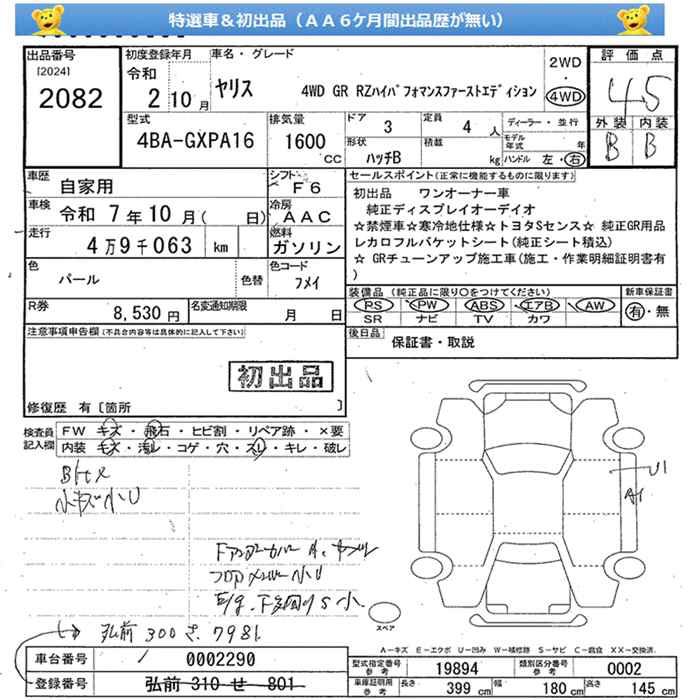 特選車＆初出品（ＡＡ6ケ月間出品歴が無い）
出品番号
[2024]
2082
初度登録年月
令和
2 10 月
車名・グレード
ヤリス
4WD GR RZハイパフォマンスファーストエディション
2WD
・
4WD
評価点
4.5
外装 内装
B B
型式
4BA-GXPA16
排気量
1600
cc
ドア 3
定員 4 人
形状
ハッチB
積載
kg
ディーラー・並行
モデル
年式 年
ハンドル 左・右
車歴
自家用
シフト
F6
車検
令和 7年10月( 日)
冷房
AAC
走行
4万9千063 km
燃料
ガソリン
色
パール
色替
色コード
フメイ
R券
8,530 円
名変通知期限
月 日
セールスポイント(正常に機能するものに限ります)
初出品 ワンオーナー車
純正ディスプレイオーデイオ
☆禁煙車☆寒冷地仕様☆トヨタSセンス☆ 純正GR用品
レカロフルバケットシート(純正シート積込)
☆ GRチューンアップ施工車(施工・作業明細証明書有
)
装備品 (純正品に限り○をつけてください)
PS PW ABS エアB AW
SR ナビ TV カワ
新車保証書
有・無
後日品
保証書・取説
注意事項申告欄(不具合内容等は具体的に記入して下さい)
初出品
修復歴 有〔箇所 〕
検査員
記入欄
FW キズ・飛石・ヒビ割・リペア跡・×要
内装 キズ・汚レ・コゲ・穴・スレ・キレ・破レ
小キズ小U
U1
A1
弘前 300 さ 7981
スペア
A－キズ E－エクボ U－凹み W－補修跡 S－サビ C－腐食 XX－交換済
車台番号
0002290
登録番号
弘前 310 せ 801
型式指定番号
参考
19894
類別区分番号
参考
0002
車庫証明用
参考
長さ 399 cm
幅 180 cm
高さ 145 cm